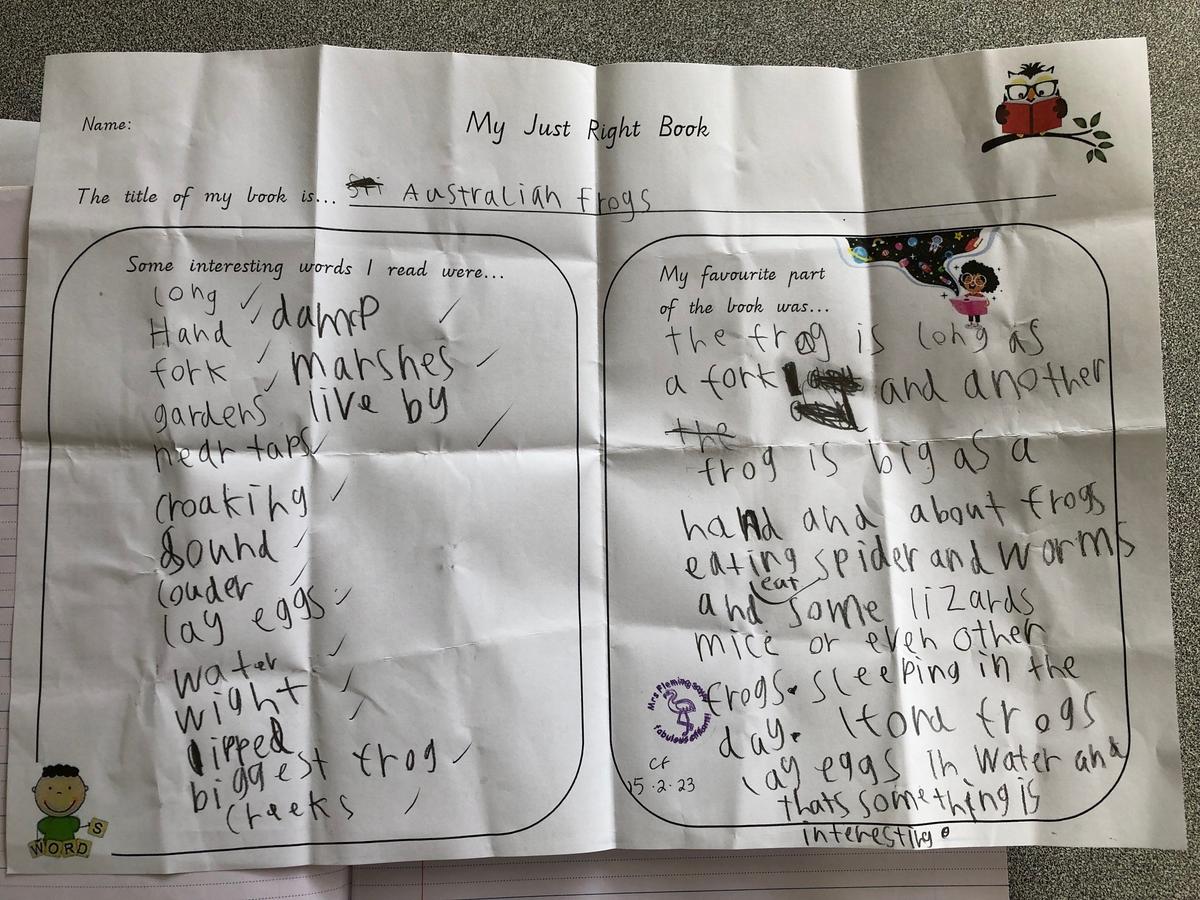 Name:
My Just Right Book
The title of my book is... Australian frogs
Some interesting words I read were...
long
Hand
fork
gardens
near taps
croaking
Sound
louder
lay eggs
water
wight
lipped
biggest frog
creeks
damp
marshes
live by
My favourite part
of the book was...
the frog is long as
a fork and another
the
frog is big as a
hand and about frogs
eating spider and worms
eat
and some lizards
mice or even other
frogs. sleeping in the
day. frogs
lay eggs in water and
thats something is
interesting.
Mrs Fleming
fabulous
CF
15.2.23
WORD
S